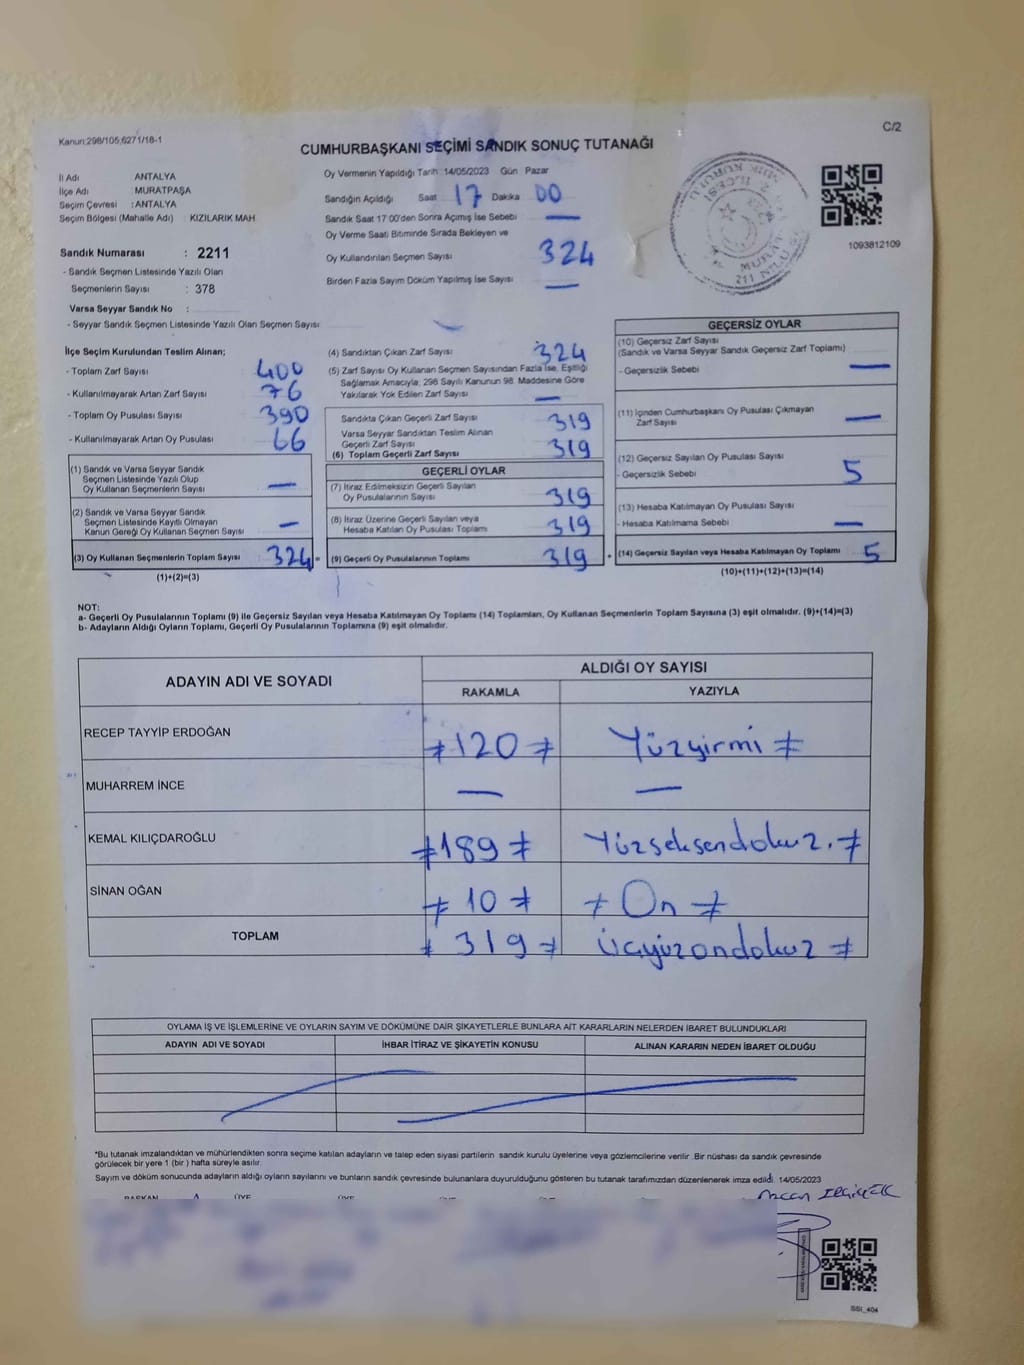 Kanun:298/105,6271/18-1
C/2
CUMHURBAŞKANI SEÇİMİ SANDIK SONUÇ TUTANAĞI
İl Adı ANTALYA
İlçe Adı : MURATPAŞA
Seçim Çevresi : ANTALYA
Seçim Bölgesi (Mahalle Adı) : KIZILARIK MAH
Sandık Numarası : 2211
- Sandık Seçmen Listesinde Yazılı Olan
Seçmenlerin Sayısı : 378
Varsa Seyyar Sandık No :
- Seyyar Sandık Seçmen Listesinde Yazılı Olan Seçmen Sayısı
Oy Vermenin Yapıldığı Tarih 14/05/2023 Gün Pazar
Sandığın Açıldığı Saat 17 Dakika 00
Sandık Saat 17 00'den Sonra Açılmış İse Sebebi —
Oy Verme Saati Bitiminde Sırada Bekleyen ve
Oy Kullandırılan Seçmen Sayısı 324
Birden Fazla Sayım Döküm Yapılmış İse Sayısı —
1093812109
İlçe Seçim Kurulundan Teslim Alınan;
- Toplam Zarf Sayısı 400
- Kullanılmayarak Artan Zarf Sayısı 76
- Toplam Oy Pusulası Sayısı 390
- Kullanılmayarak Artan Oy Pusulası 66
(1) Sandık ve Varsa Seyyar Sandık
Seçmen Listesinde Yazılı Olup
Oy Kullanan Seçmenlerin Sayısı —
(2) Sandık ve Varsa Seyyar Sandık
Seçmen Listesinde Kayıtlı Olmayan
Kanun Gereği Oy Kullanan Seçmen Sayısı —
(3) Oy Kullanan Seçmenlerin Toplam Sayısı 324 =
(1)+(2)=(3)
(4) Sandıktan Çıkan Zarf Sayısı 324
(5) Zarf Sayısı Oy Kullanan Seçmen Sayısından Fazla İse, Eşitliği
Sağlamak Amacıyla, 298 Sayılı Kanunun 98. Maddesine Göre
Yakılarak Yok Edilen Zarf Sayısı —
Sandıkta Çıkan Geçerli Zarf Sayısı 319
Varsa Seyyar Sandıktan Teslim Alınan
Geçerli Zarf Sayısı
(6) Toplam Geçerli Zarf Sayısı 319
GEÇERLİ OYLAR
(7) İtiraz Edilmeksizin Geçerli Sayılan
Oy Pusulalarının Sayısı 319
(8) İtiraz Üzerine Geçerli Sayılan veya
Hesaba Katılan Oy Pusulası Toplamı 319
(9) Geçerli Oy Pusulalarının Toplamı 319 +
GEÇERSİZ OYLAR
(10) Geçersiz Zarf Sayısı
(Sandık ve Varsa Seyyar Sandık Geçersiz Zarf Toplamı)
- Geçersizlik Sebebi —
(11) İçinden Cumhurbaşkanı Oy Pusulası Çıkmayan
Zarf Sayısı —
(12) Geçersiz Sayılan Oy Pusulası Sayısı
- Geçersizlik Sebebi 5
(13) Hesaba Katılmayan Oy Pusulası Sayısı
- Hesaba Katılmama Sebebi —
(14) Geçersiz Sayılan veya Hesaba Katılmayan Oy Toplamı 5
(10)+(11)+(12)+(13)=(14)
NOT:
a- Geçerli Oy Pusulalarının Toplamı (9) ile Geçersiz Sayılan veya Hesaba Katılmayan Oy Toplamı (14) Toplamları, Oy Kullanan Seçmenlerin Toplam Sayısına (3) eşit olmalıdır. (9)+(14)=(3)
b- Adayların Aldığı Oyların Toplamı, Geçerli Oy Pusulalarının Toplamına (9) eşit olmalıdır.
ADAYIN ADI VE SOYADI ALDIĞI OY SAYISI
RAKAMLA YAZIYLA
RECEP TAYYİP ERDOĞAN ≠120≠ Yüzyirmi ≠
MUHARREM İNCE — —
KEMAL KILIÇDAROĞLU ≠189≠ Yüzseksendokuz. ≠
SİNAN OĞAN ≠10≠ ≠ On ≠
TOPLAM ≠319≠ üçyüzondokuz ≠
OYLAMA İŞ VE İŞLEMLERİNE VE OYLARIN SAYIM VE DÖKÜMÜNE DAİR ŞİKAYETLERLE BUNLARA AİT KARARLARIN NELERDEN İBARET BULUNDUKLARI
ADAYIN ADI VE SOYADI İHBAR İTİRAZ VE ŞİKAYETİN KONUSU ALINAN KARARIN NEDEN İBARET OLDUĞU
*Bu tutanak imzalandıktan ve mühürlendikten sonra seçime katılan adayların ve talep eden siyasi partilerin sandık kurulu üyelerine veya gözlemcilerine verilir .Bir nüshası da sandık çevresinde
görülecek bir yere 1 (bir ) hafta süreyle asılır.
Sayım ve döküm sonucunda adayların aldığı oyların sayılarını ve bunların sandık çevresinde bulunanlara duyurulduğunu gösteren bu tutanak tarafımızdan düzenlenerek imza edildi. 14/05/2023
BAŞKAN ÜYE ÜYE
SSI_404